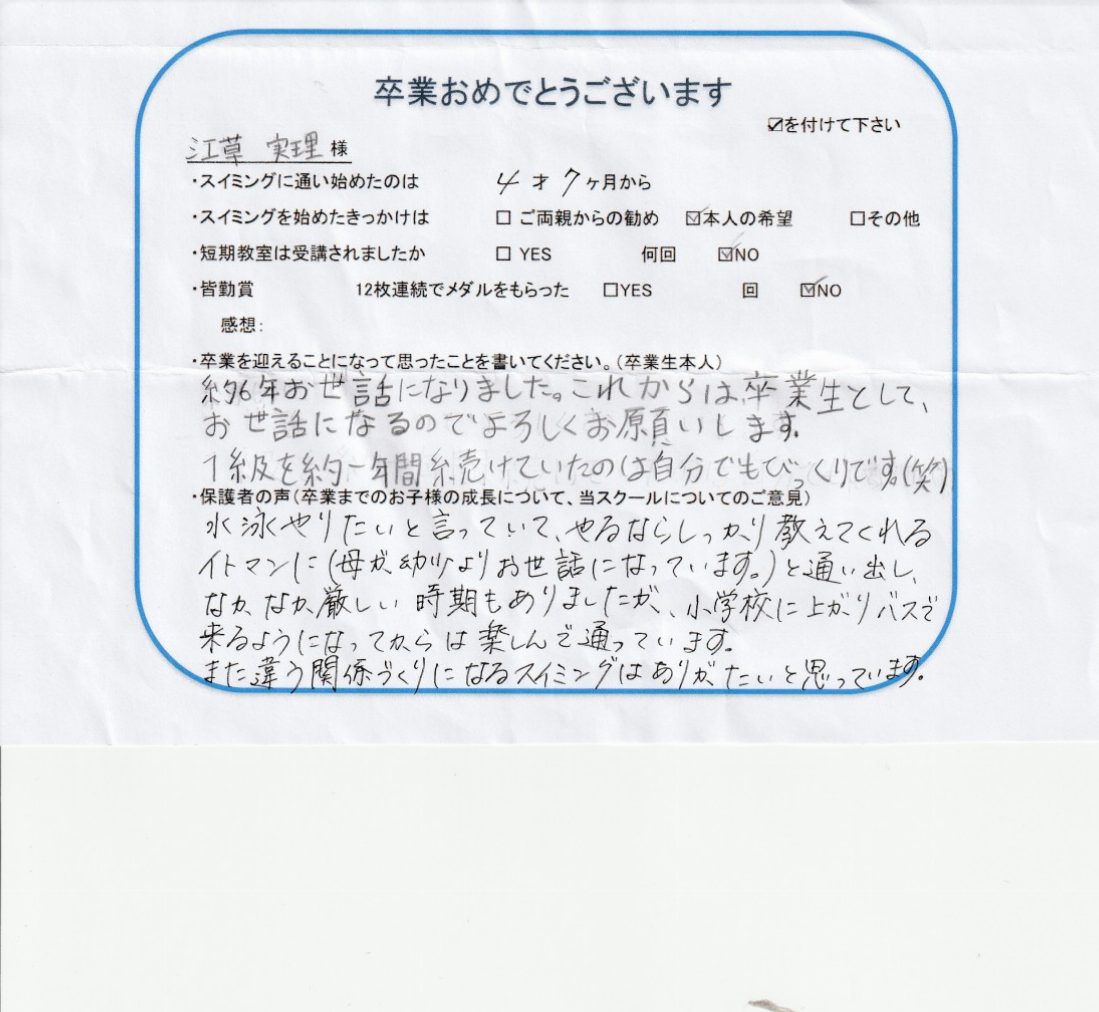 卒業おめでとうございます
☑を付けて下さい
江草 実理 様
・スイミングに通い始めたのは 4才7ヶ月から
・スイミングを始めたきっかけは □ ご両親からの勧め ☑本人の希望 □その他
・短期教室は受講されましたか □ YES 何回 ☑NO
・皆勤賞 12枚連続でメダルをもらった □YES 回 ☑NO
感想:
・卒業を迎えることになって思ったことを書いてください。(卒業生本人)
約6年お世話になりました。これからは卒業生として、
お世話になるのでよろしくお願いします。
1級を約一年間続けていたのは自分でもびっくりです。(笑)
・保護者の声(卒業までのお子様の成長について、当スクールについてのご意見)
水泳やりたいと言っていて、やるならしっかり教えてくれる
イトマンに(母が幼少よりお世話になっています。)と通い出し、
なかなか厳しい時期もありましたが、小学校に上がりバスで
来るようになってからは楽しんで通っています。
また違う関係づくりになるスイミングはありがたいと思っています。